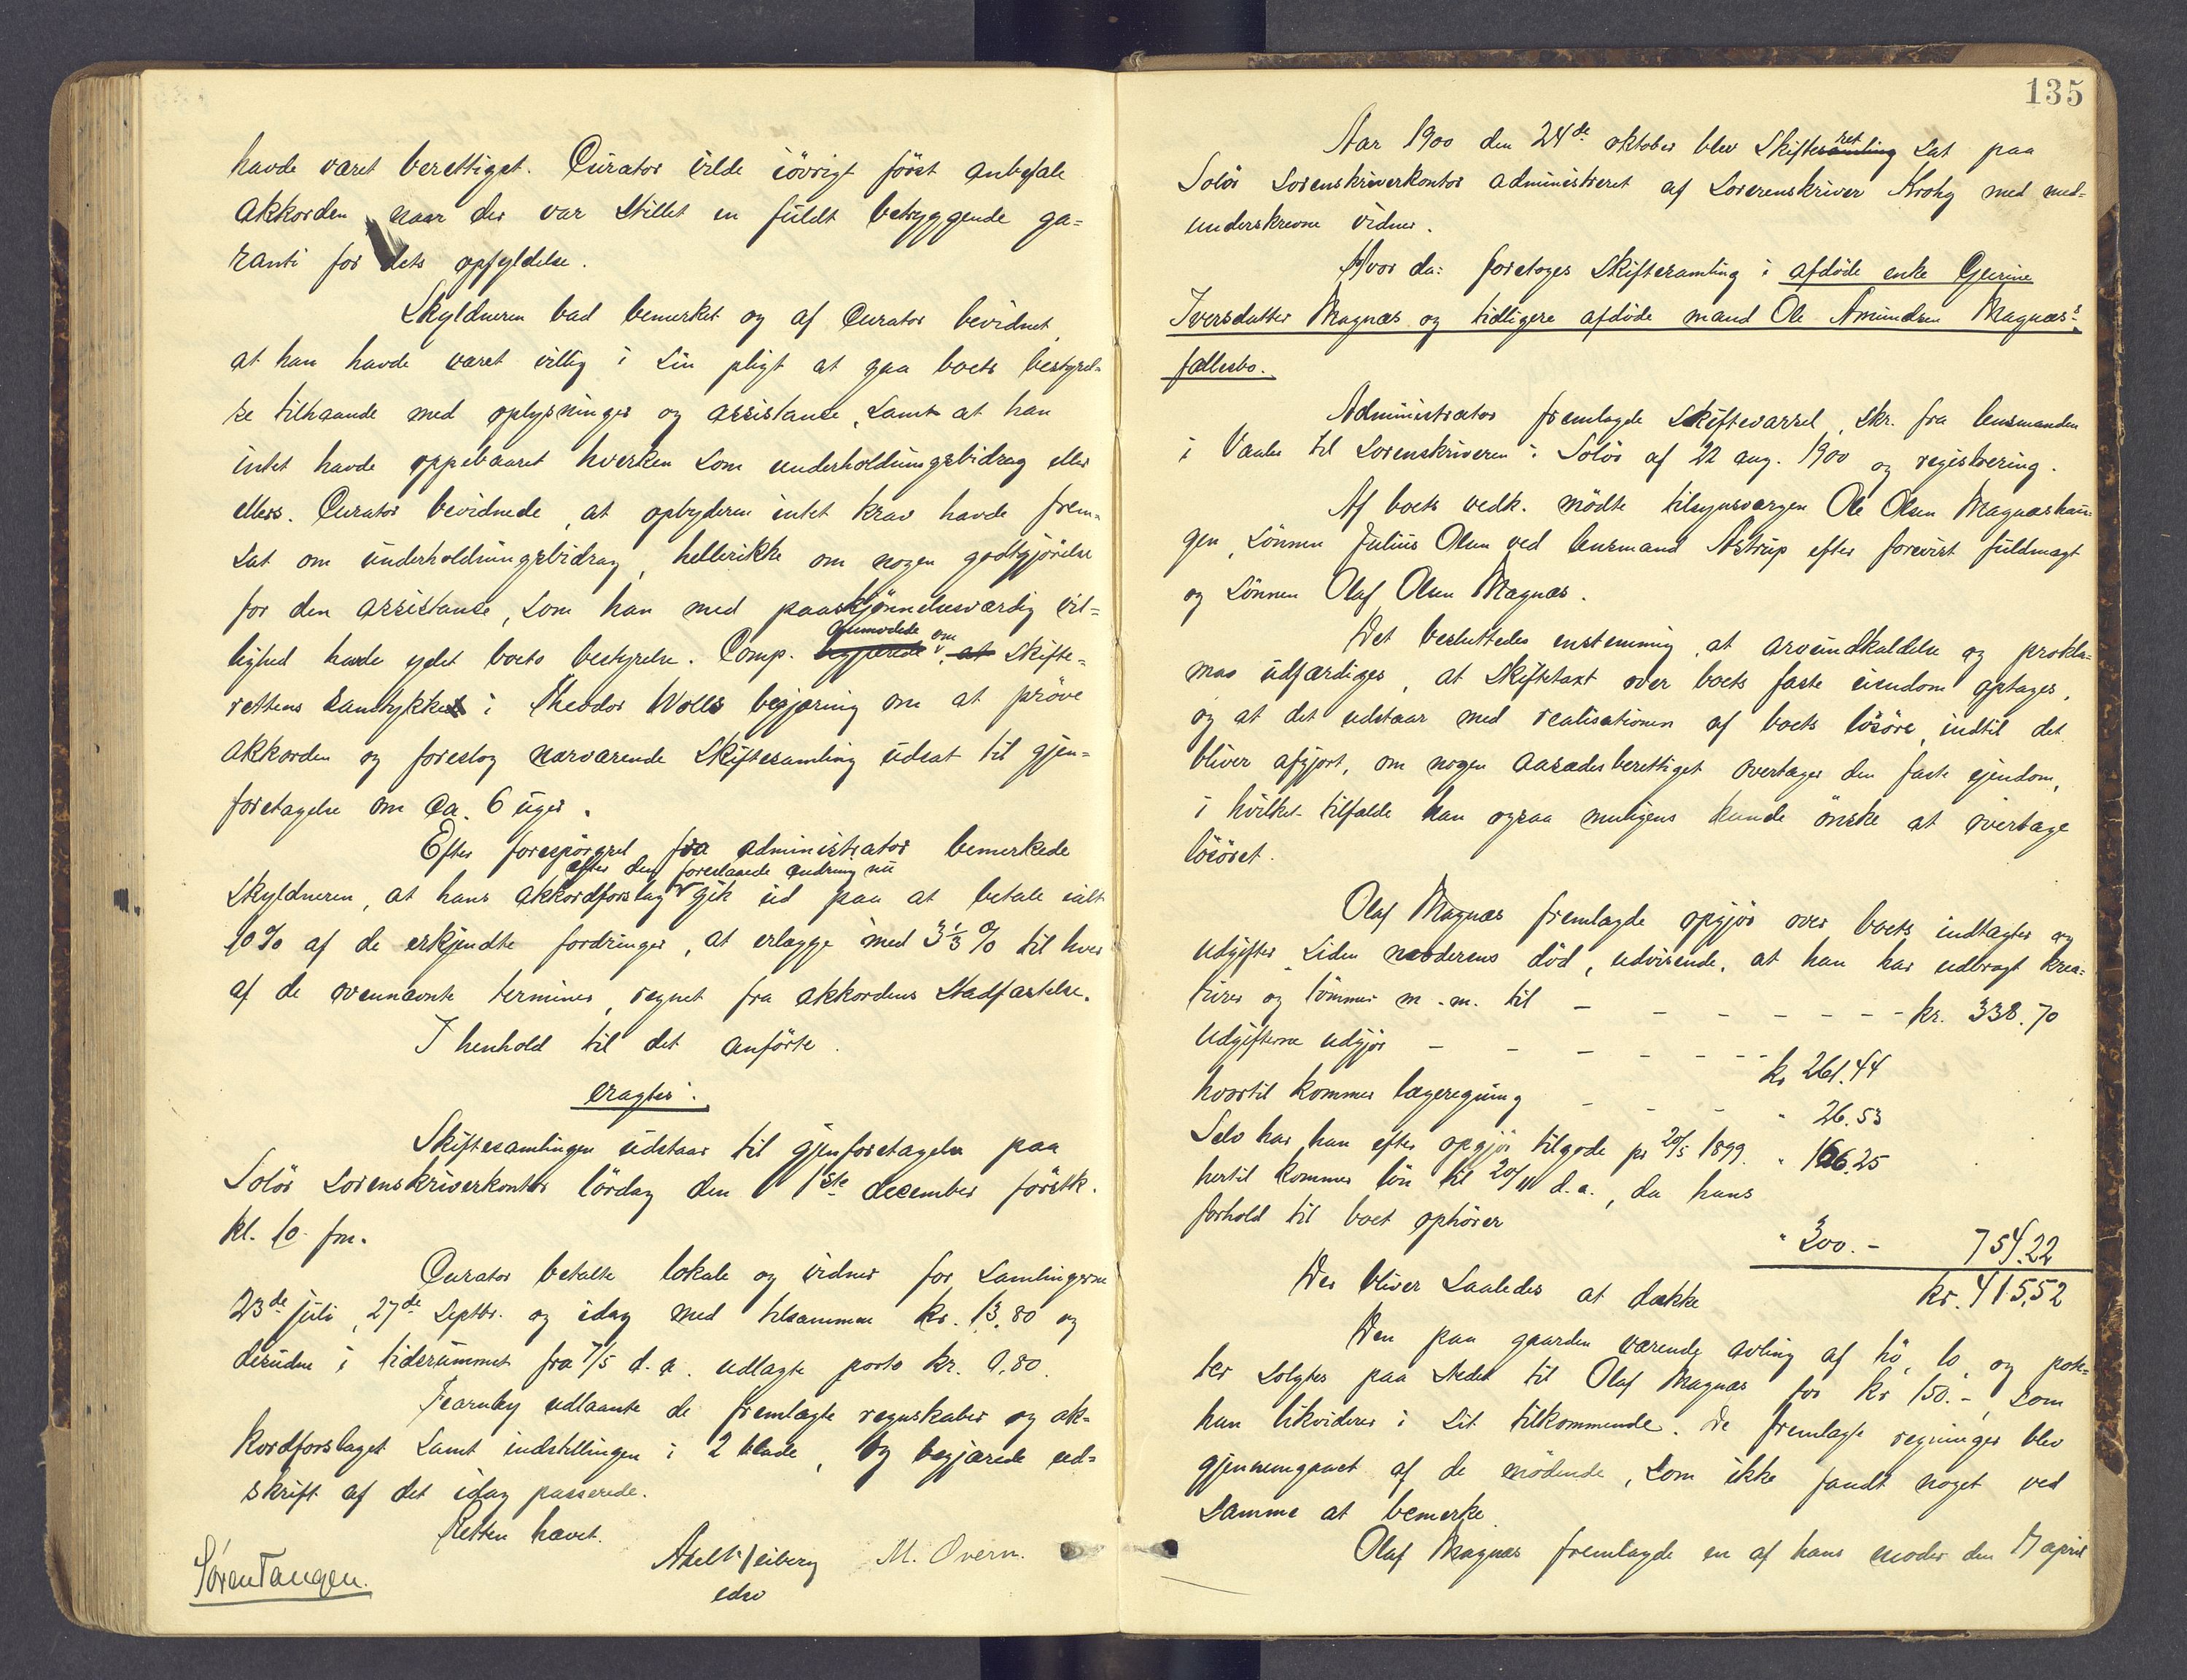 havde været berettiget. Curator vilde iövrigt först anbefale
akkorden, naar der var stillet en fuldt betryggende ga=
ranti for dets opfyldelse.
Skyldneren bad bemerket og af Curator bevidnet,
at han havde været villig i sin pligt at gaa boets bestyrel-
se tilhaande med oplysninger og assistanse, samt at han
intet havde oppebaaret hverken som underholdningsbidrag eller
ellers. Curator bevidnede, at opbyderen intet krav havde frem-
sat om underholdningsbidrag, hellerikke om nogen godtgjörelse
for den assistanse, som han med paaskjönnelsesværdig vil=
lighed havde ydet boets bestyrelse. Comp. anmodede om Skifte-
rettens samtykke i Theodor Wolls begjæring om at pröve
akkorden og foreslog nærværende Skiftesamling udsat til gjen=
foretagelse om ca. 6 uger.
Efter forespörgsel fra administrator bemerkede
efter den foreslaaede ændring nu
Skyldneren, at hans akkordforslag gik ud paa at betale ialt
10 % af de erkjendte fordringer, at erlægge med 3⅓ % til hver
af de ovennævnte terminer, regnet fra akkordens Stadfæstelse.
I henhold til det anförte
eragtes:
Skiftesamlingen udstaar til gjenforetagelse paa
Solör Sorenskriverkontor lördag den 1ste december förstk.
kl. 10 fm.
Curator betalte lokale og vidner for samlingerne
23de juli, 27de septbr. og idag med tilsammen kr. 13.80 og
desuden i tidsrummet fra 7/5 d. a. udlagte porto kr. 0.80.
Fearnley udlaante de fremlagte regnskaber og ak=
kordforslaget samt indstillingen i 2 blade, og begjærede ud=
skrift af det idag passerede.
Retten hævet.
Sören Tangen.
M. Overn.
edsv
135
Aar 1900 den 24de oktober blev Skifteret sat paa
Solör Sorenskriverkontor administreret af Sorenskriver Krohg med med=
underskrevne vidner.
Hvor da: foretoges Skiftesamling i afdöde enke Gjerine
Iversdatter Magnæs og tidligere afdöde mand Ole Amundsen Magnæs's
fællesbo.
Administrator fremlagde Skiftevarsel, skr. fra lensmanden
i Vaaler til Sorenskriveren i Solör af 22 aug. 1900 og registrering.
Af boets vedk. mödte tilsynsværgen Ole Olsen Magnæshau=
gen, sönnen Julius Olsen ved lensmand Astrup efter forevist fuldmagt
og sönnen Olaf Olsen Magnæs.
Det besluttedes enstemmig, at arveindkaldelse og prokla=
mas udfærdiges, at Skiftetaxt over boets faste eiendom optages,
og at det udstaar med realisationen af boets lösöre, indtil det
bliver afgjort, om nogen aasædesberettiget overtager den faste ejendom,
i hvilket tilfælde han ogsaa muligens kunde önske at overtage
lösöret.
Olaf Magnæs fremlagde opgjör over boets indtægter og
udgifter siden moderens död, udvisende, at han har udbragt krea=
turer og tömmer m. m. til - - - - - - - kr. 338.70
Udgifterne udgjör - - - - - - - kr 261.44
hvortil kommer lægeregning - - - " 26.53
Selv har han efter opgjör tilgode pr 20/5 1899. " 166.25
hertil kommer lön til 20/11 d. a., da hans
forhold til boet ophörer " 300.- 754.22
Der bliver saaledes at dække kr. 415.52
Den paa gaarden værende avling af hö, lo og pote=
ter solgtes paa stedet til Olaf Magnæs for kr 150.-, som
han likviderer i sit tilkommende. De fremlagte regninger blev
gjennemgaaet af de mödende, som ikke fandt noget ved
samme at bemerke.
Olaf Magnæs fremlagde en af hans moder den 17 april